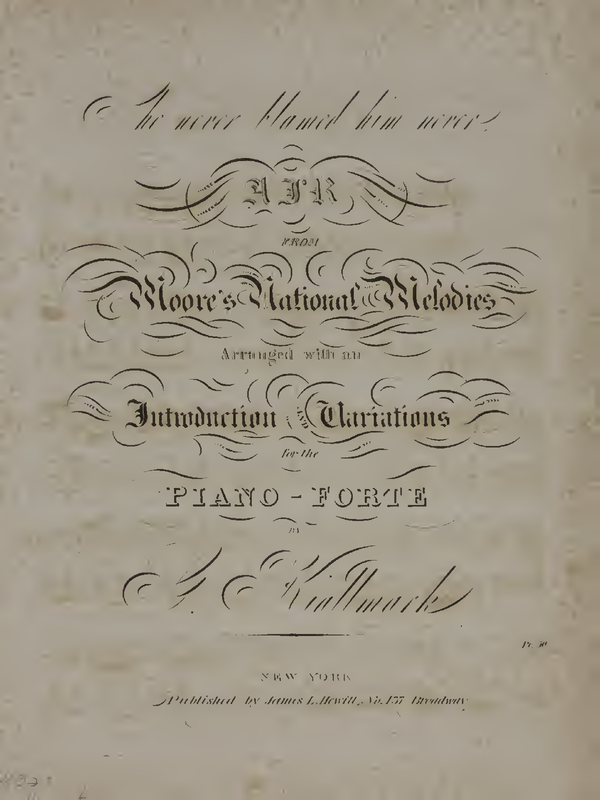 She never blamed him never.
AIR
FROM
Moore's National Melodies
Arranged with an
Introduction AND Variations
for the
PIANO-FORTE
BY
G. Kiallmark
Pr. 50
NEW YORK
Published by James L. Hewitt, No. 137 Broadway